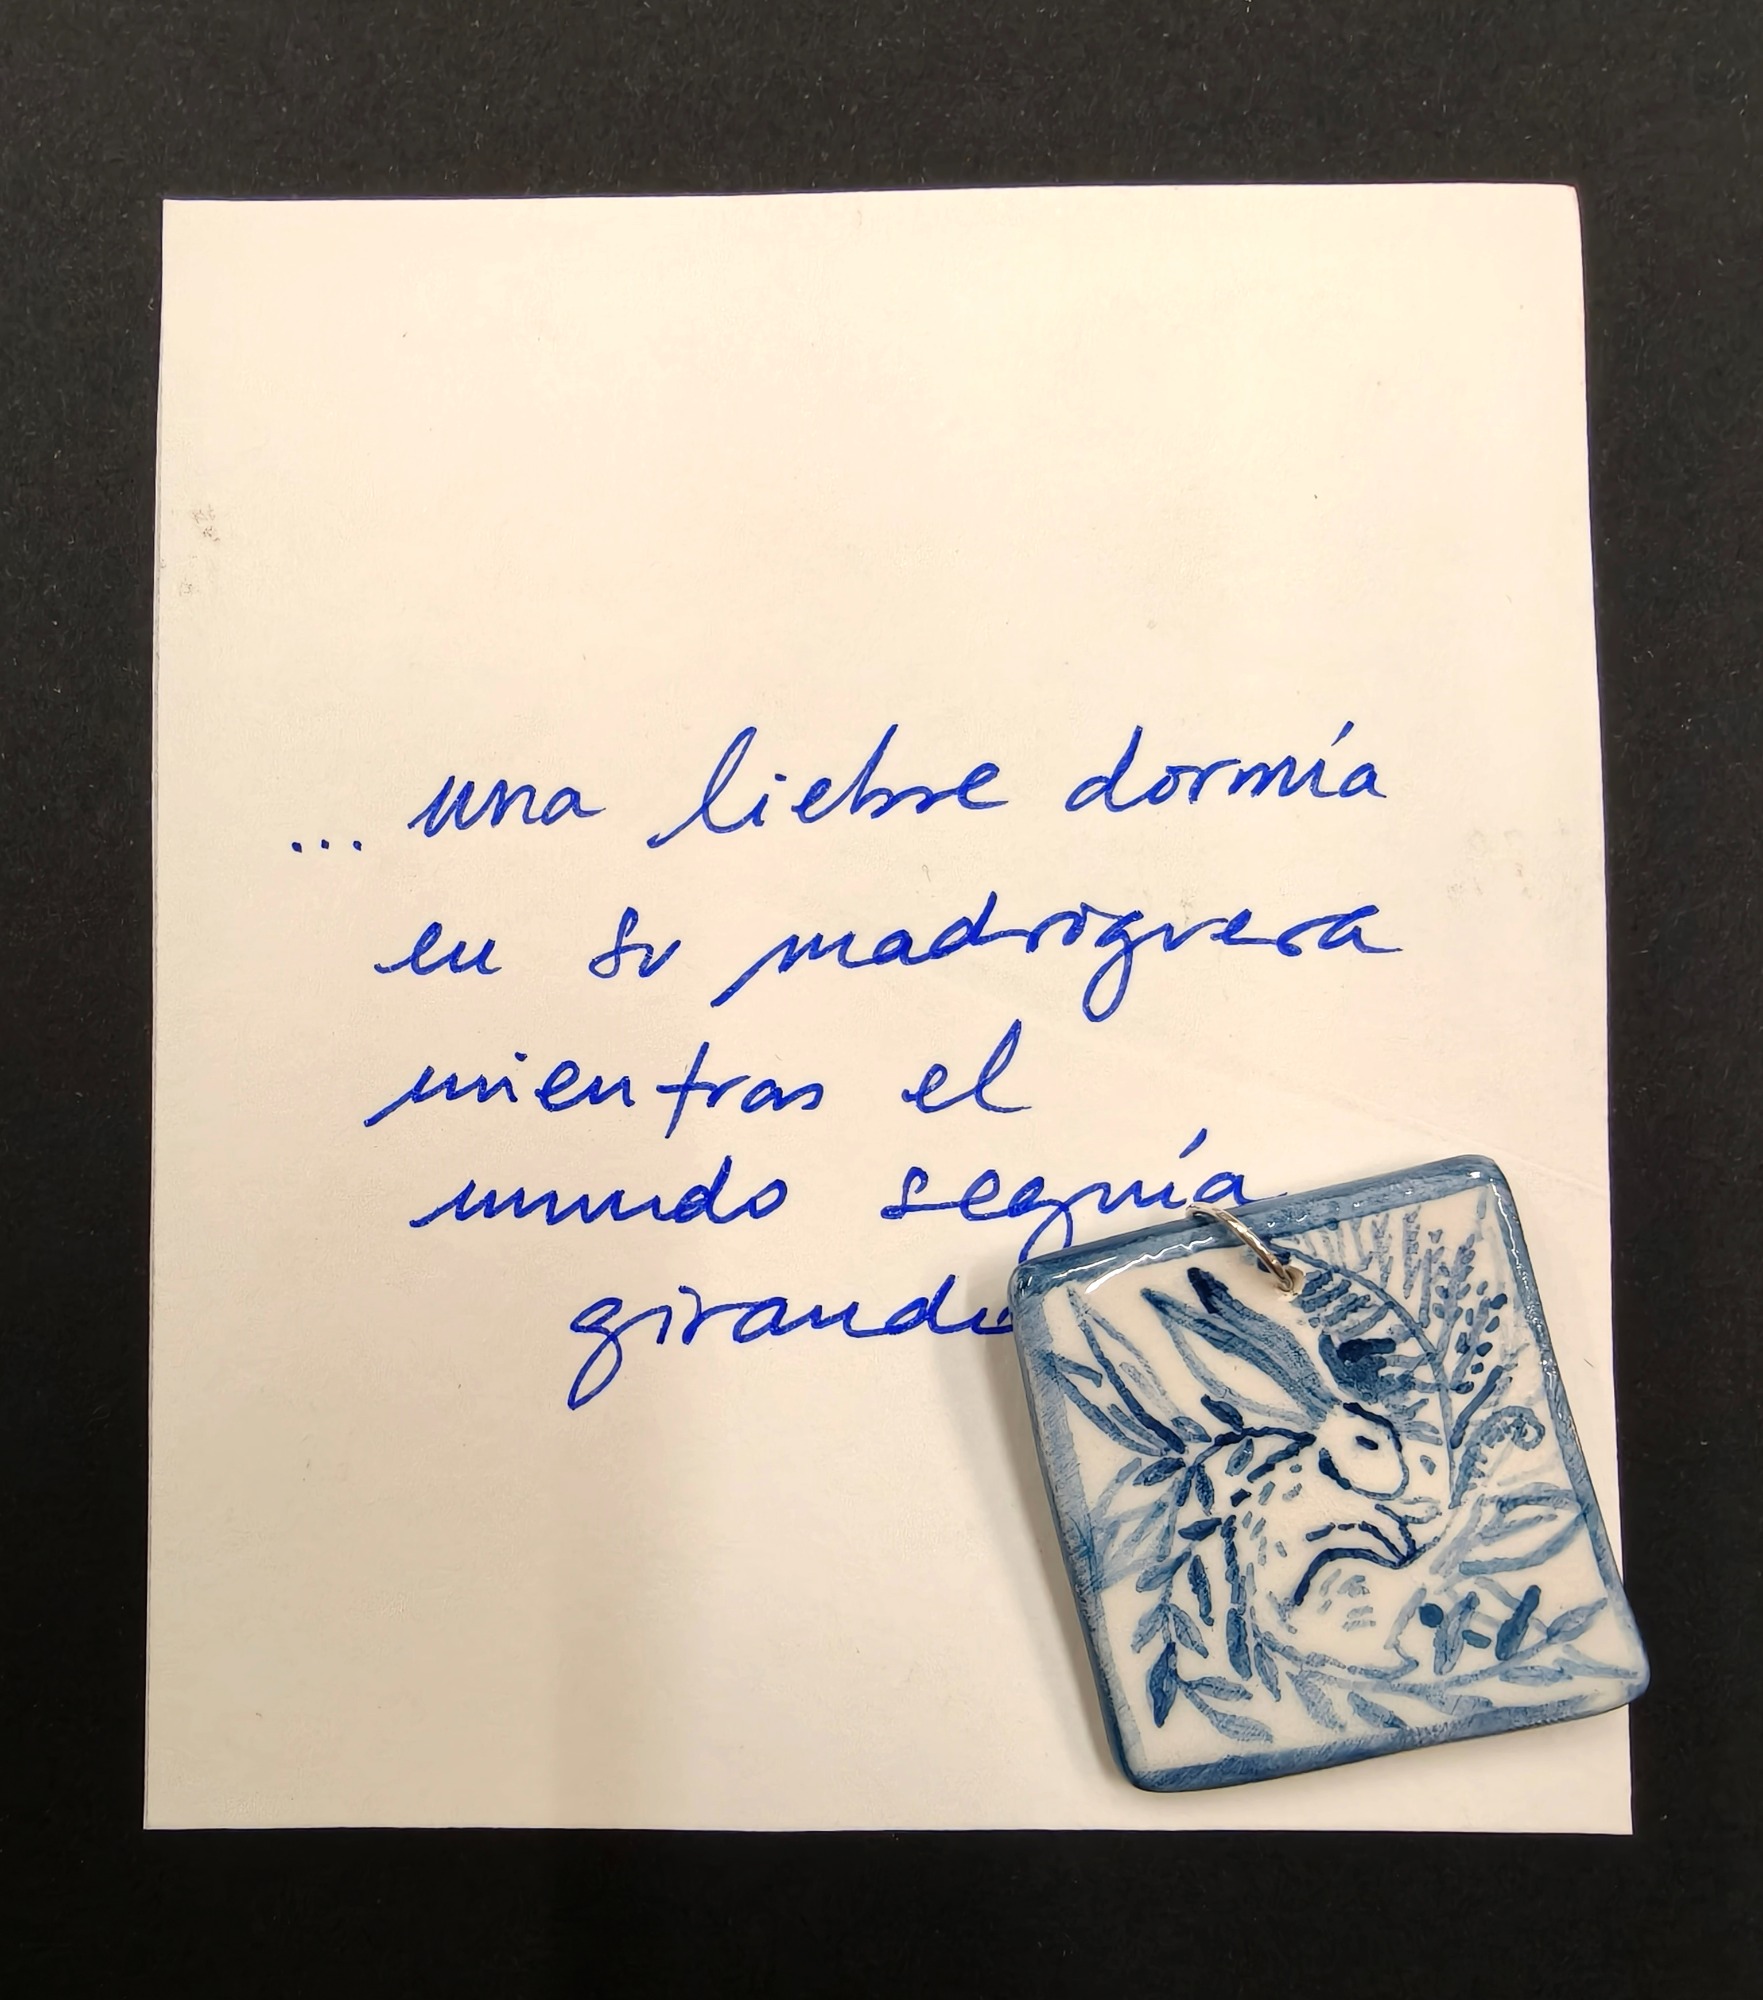 ... una liebre dormía
en su madriguera
mientras el
mundo seguía
girando